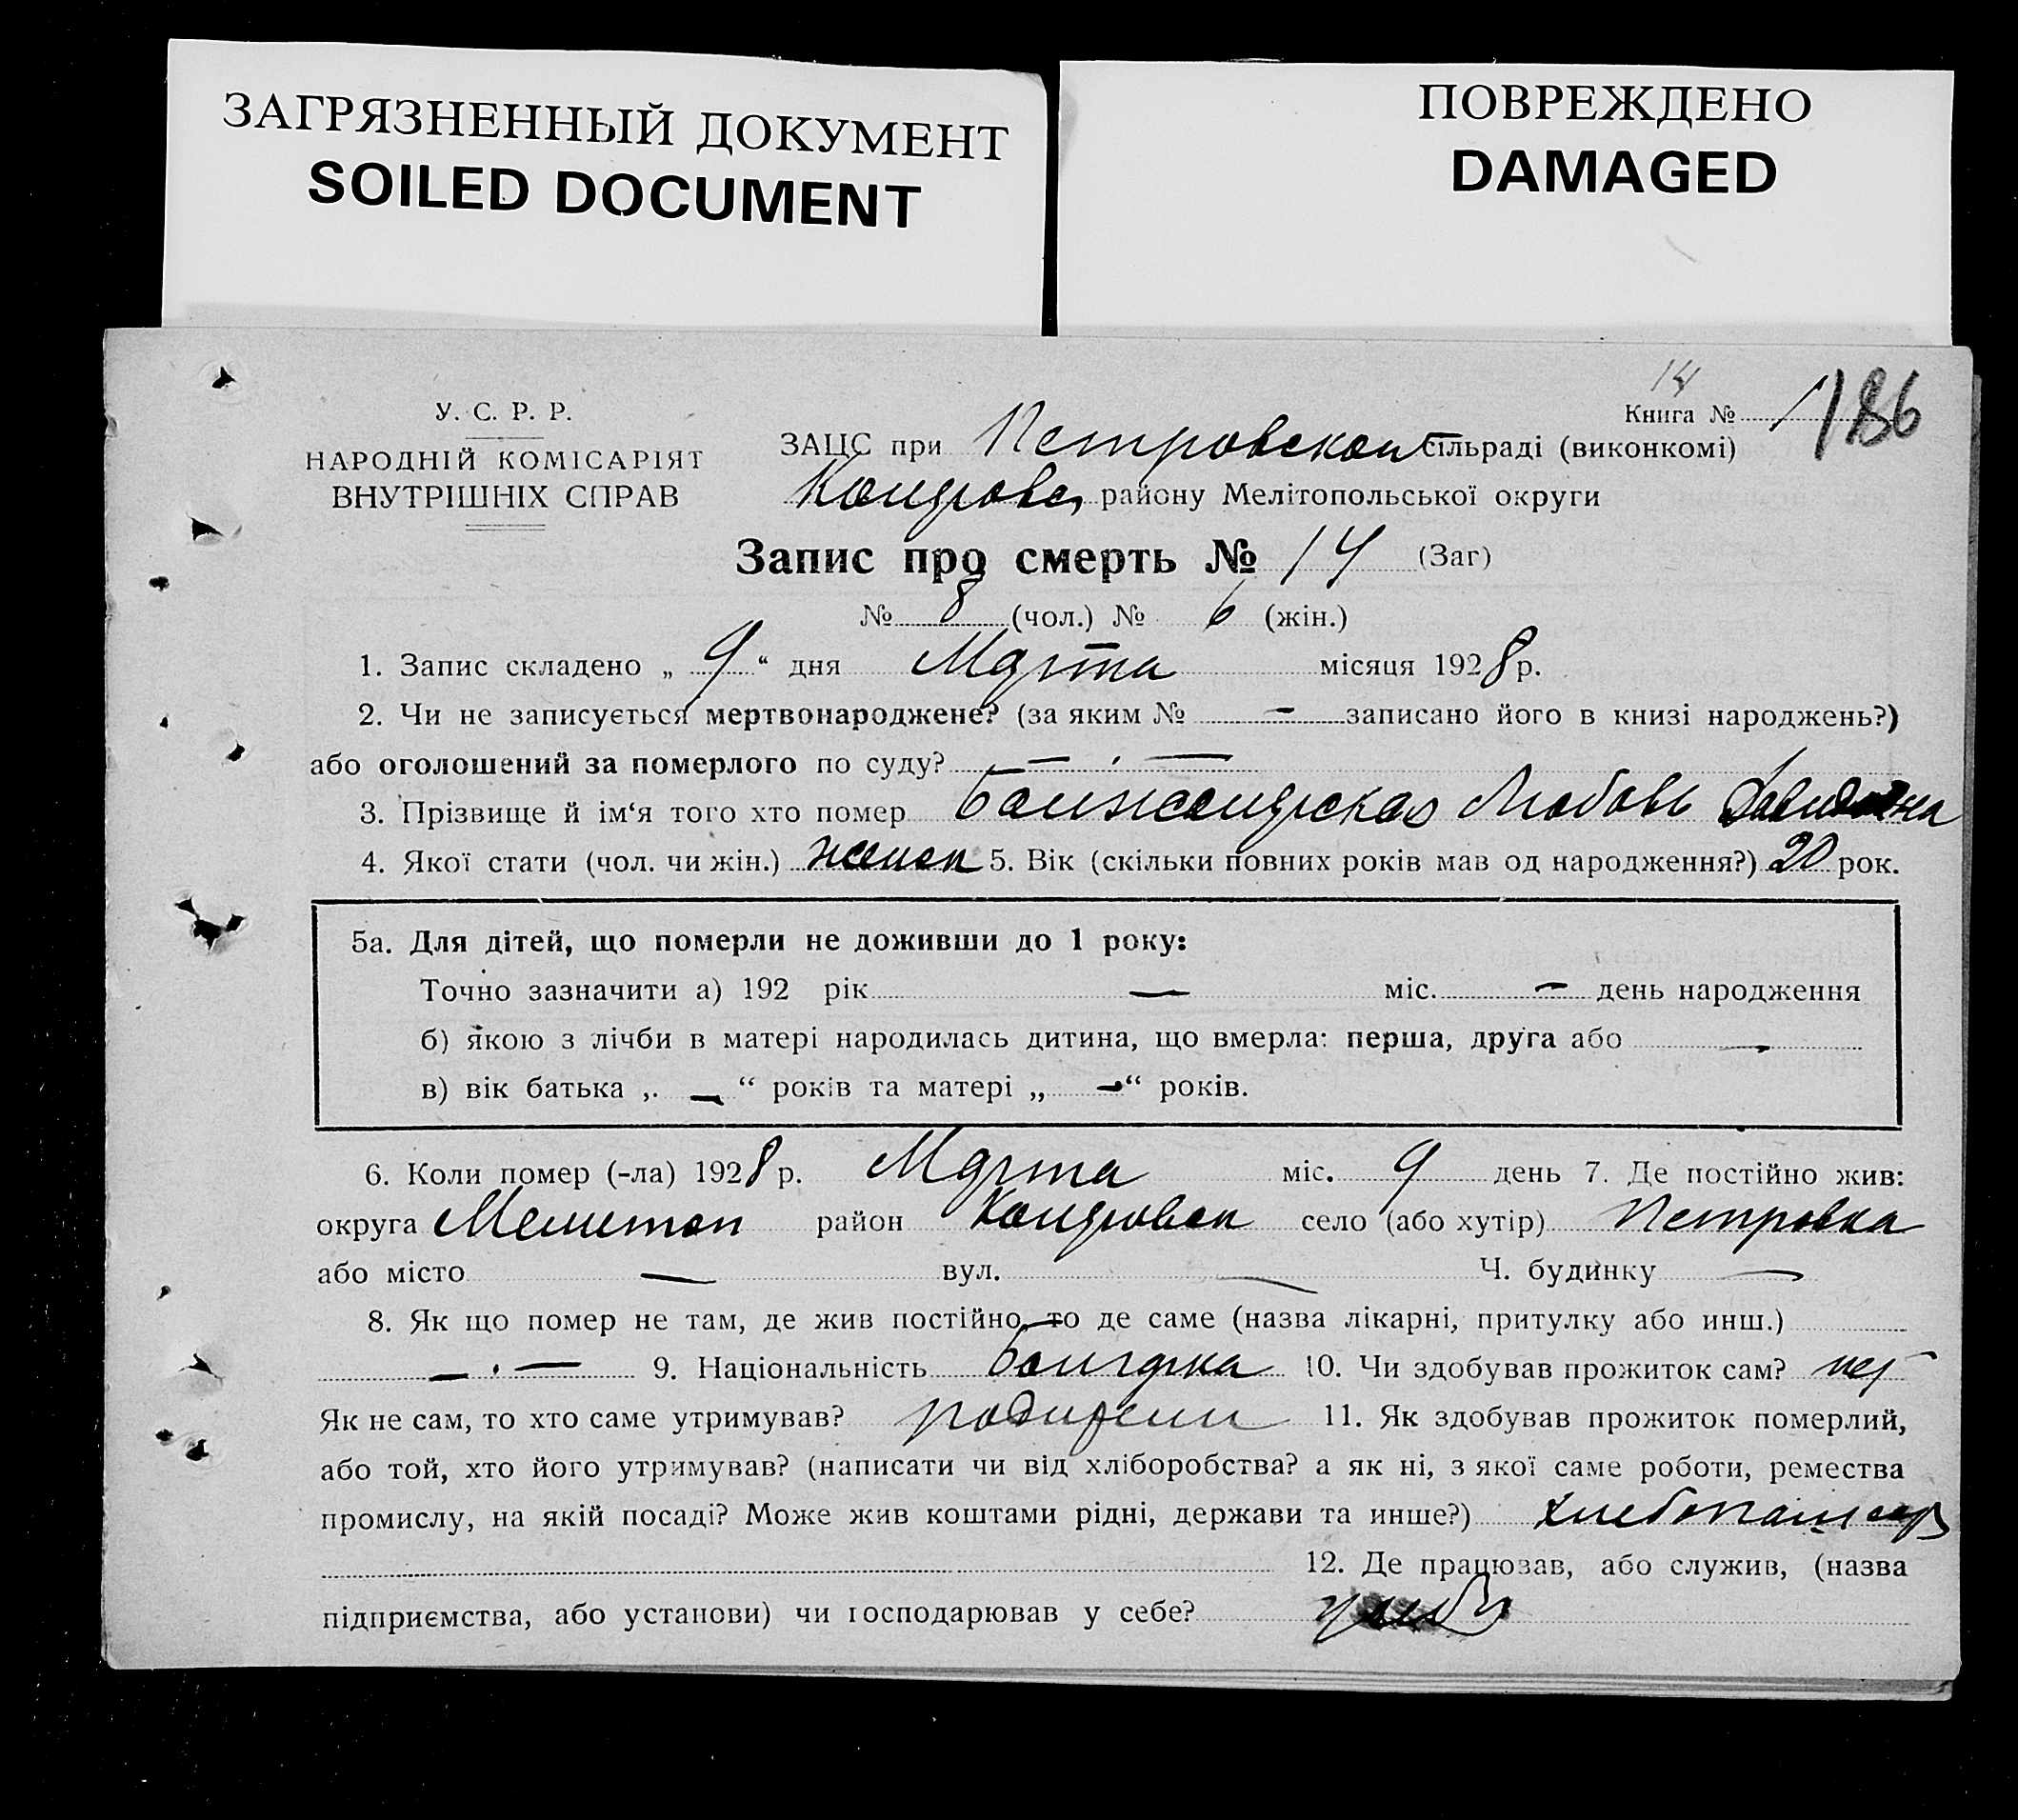 ЗАГРЯЗНЕННЫЙ ДОКУМЕНТ
SOILED DOCUMENT
ПОВРЕЖДЕНО
DAMAGED
14
Книга № 1 186
У. С. Р. Р.
НАРОДНІЙ КОМІСАРІЯТ
ВНУТРІШНІХ СПРАВ
ЗАЦС при Петровской сільраді (виконкомі)
району Мелітопольської округи
Запис про смерть № 14 (Заг)
№ 8 (чол.) № 6 (жін.)
1. Запис складено „ 9 “ дня Марта місяця 1928 р.
2. Чи не записується мертвонароджене? (за яким № – записано його в книзі народжень?)
або оголошений за померлого по суду? — . —
3. Прізвище й ім‘я того хто помер Любовь
4. Якої стати (чол. чи жін.) женск 5. Вік (скільки повних років мав од народження?) 20 рок.
5а. Для дітей, що померли не доживши до 1 року:
Точно зазначити а) 192 рік — міс. – день народження
б) якою з лічби в матері народилась дитина, що вмерла: перша, друга або —
в) вік батька „ — “ років та матері „ — “ років.
6. Коли помер (-ла) 1928 р. Марта міс. 9 день 7. Де постійно жив:
округа Мелитоп район село (або хутір) Петровка
або місто — вул. — Ч. будинку —
8. Як що помер не там, де жив постійно, то де саме (назва лікарні, притулку або инш.)
— . — 9. Національність Болгарка 10. Чи здобував прожиток сам? нет
Як не сам, то хто саме утримував? родители 11. Як здобував прожиток померлий,
або той, хто його утримував? (написати чи від хліборобства? а як ні, з якої саме роботи, ремества
промислу, на якій посаді? Може жив коштами рідні, держави та инше?)
12. Де працював, або служив, (назва
підприємства, або установи) чи господарював у себе?